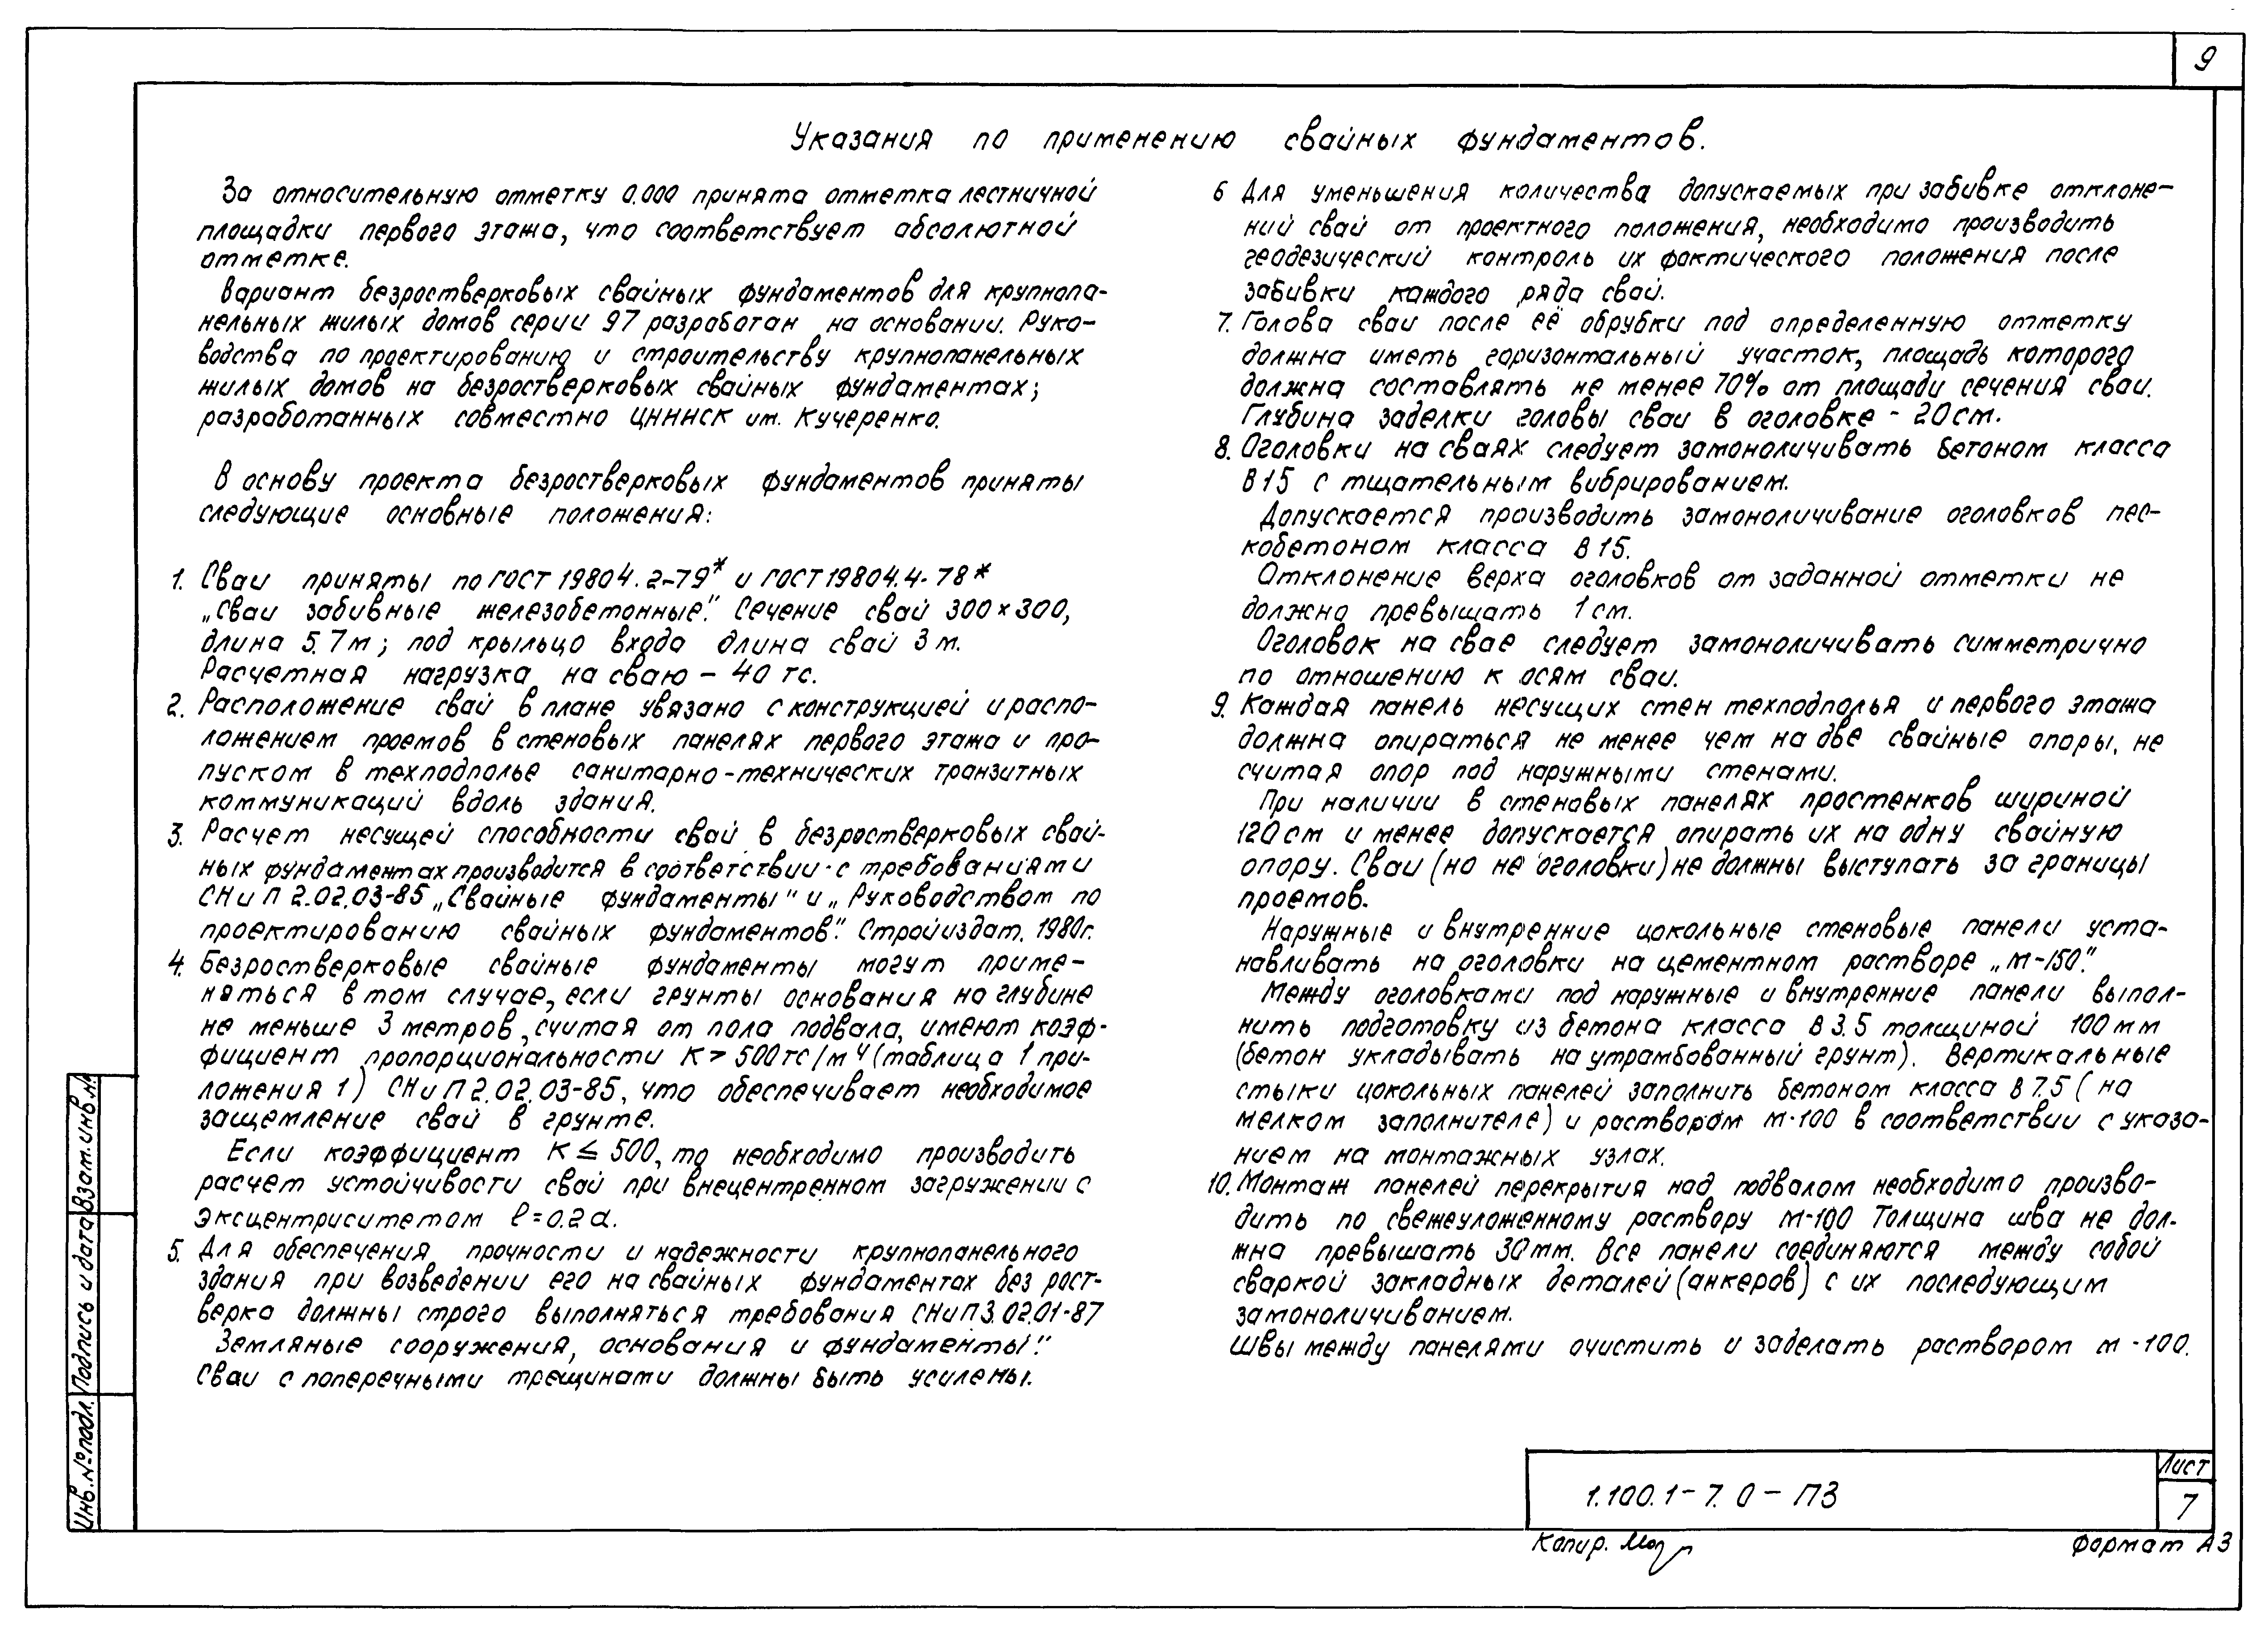 9
Указания по применению свайных фундаментов.
За относительную отметку 0.000 принята отметка лестничной
площадки первого этажа, что соответствует абсолютной
отметке.
Вариант безростверковых свайных фундаментов для крупнопа-
нельных жилых домов серии 97 разработан на основании. Руко-
водства по проектированию и строительству крупнопанельных
жилых домов на безростверковых свайных фундаментах;
разработанных совместно ЦНИИСК им. Кучеренко.
В основу проекта безростверковых фундаментов приняты
следующие основные положения:
1. Сваи приняты по ГОСТ 19804.2-79* и ГОСТ 19804.4-78*
„Сваи забивные железобетонные". Сечение свай 300×300,
длина 5.7м; под крыльцо входа длина свай 3 м.
Расчетная нагрузка на сваю - 40 тс.
2. Расположение свай в плане увязано с конструкцией и распо-
ложением проемов в стеновых панелях первого этажа и про-
пуском в техподполье санитарно-технических транзитных
коммуникаций вдоль здания.
3. Расчет несущей способности свай в безростверковых свай-
ных фундаментах производится в соответствии с требованиями
СНиП 2.02.03-85 „Свайные фундаменты" и „Руководством по
проектированию свайных фундаментов". Стройиздат. 1980г.
4. Безростверковые свайные фундаменты могут приме-
няться в том случае, если грунты основания на глубине
не меньше 3 метров, считая от пола подвала, имеют коэф-
фициент пропорциональности К > 500тс/м⁴ (таблица 1 при-
ложения 1) СНиП 2.02.03-85, что обеспечивает необходимое
защемление свай в грунте.
Если коэффициент К ≤ 500, то необходимо производить
расчет устойчивости свай при внецентренном загружении с
эксцентриситетом ℓ=0.2d.
5. Для обеспечения прочности и надежности крупнопанельного
здания при возведении его на свайных фундаментах без рост-
верка должны строго выполняться требования СНиП 3.02.01-87
Земляные сооружения, основания и фундаменты".
Сваи с поперечными трещинами должны быть усилены.
6 Для уменьшения количества допускаемых при забивке отклоне-
ний свай от проектного положения, необходимо производить
геодезический контроль их фактического положения после
забивки каждого ряда свай.
7. Голова сваи после её обрубки под определенную отметку
должна иметь горизонтальный участок, площадь которого
должна составлять не менее 70% от площади сечения сваи.
Глубина заделки головы сваи в оголовке - 20см.
8. Оголовки на сваях следует замоноличивать бетоном класса
В15 с тщательным вибрированием.
Допускается производить замоноличивание оголовков пес-
кобетоном класса В15.
Отклонение верха оголовков от заданной отметки не
должно превышать 1см.
Оголовок на свае следует замоноличивать симметрично
по отношению к осям сваи.
9. Каждая панель несущих стен техподполья и первого этажа
должна опираться не менее чем на две свайные опоры, не
считая опор под наружными стенами.
При наличии в стеновых панелях простенков шириной
120см и менее допускается опирать их на одну свайную
опору. Сваи (но не оголовки) не должны выступать за границы
проемов.
Наружные и внутренние цокольные стеновые панели уста-
навливать на оголовки на цементном растворе „М-150".
Между оголовками под наружные и внутренние панели выпол-
нить подготовку из бетона класса В 3.5 толщиной 100мм
(бетон укладывать на утрамбованный грунт). Вертикальные
стыки цокольных панелей заполнить бетоном класса В 7.5 (на
мелком заполнителе) и раствором М-100 в соответствии с указа-
нием на монтажных узлах.
10. Монтаж панелей перекрытия над подвалом необходимо произво-
дить по свежеуложенному раствору М-100 Толщина шва не дол-
жна превышать 30мм. Все панели соединяются между собой
сваркой закладных деталей (анкеров) с их последующим
замоноличиванием.
Швы между панелями очистить и заделать раствором М-100.
Взам. инв. №
Подпись и дата
Инв. № подл.
1.100.1-7.0-ПЗ
Лист
7
Копир.
Формат А3